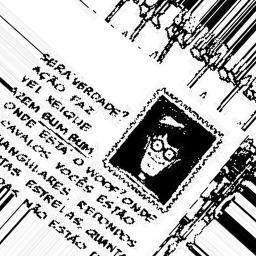 SERÁ VERDADE?
AÇÃO FAZ
VEL XEIQUE
AZEM BUM BUM
ONDE ESTÁ O WOOF? ONDE
CAVALOS VOCÊS ESTÃO
ANGULARES REDONDOS
TAS ESTRELAS QUANT
NÃO ESTÃO